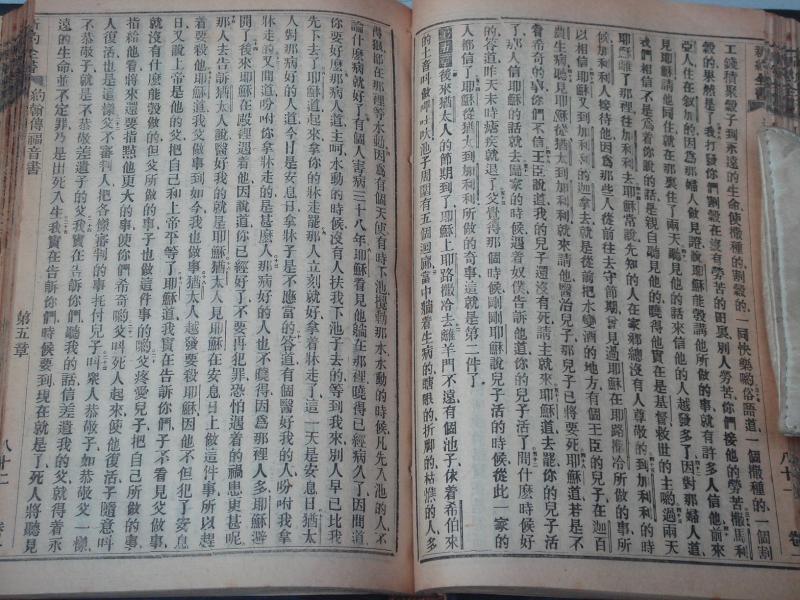 新約全書
八十一
工錢積聚穀子到永遠的生命使撒種的割穀的一同快樂喲俗語道一個撒種的一個割
穀的果然是了我打發你們割穀在沒有勞苦的田裏別人勞苦你們接他的勞苦撒馬利
亞人住在叙加的因爲那婦人做見證說耶穌能彀講他所做的事就有許多人信他前來
見耶穌請他同住就在那裏住了兩天聽見他的話來信他的人越發多了因對那婦人道
我們相信不是爲着你說的話是親自聽見他的曉得他實在是基督救世的主喲過兩天
離了那裡往加利利去耶穌常說先知的人在家鄉總沒有人尊敬的到加利利的時
候加利利人接待他因爲那些人從前往去守節期曾見過耶穌在耶路撒冷所做的事所
以相信耶穌從猶太到加利利的迦拿去就是從前把水變酒的地方有個王臣的兒子在迦百
農生病聽見耶穌從猶太到加利利就來請他醫治兒子那兒子已將要死耶穌道若是不
看希奇的事你們不信王臣說道我的兒子還沒有死請主就來耶穌道去罷你的兒子活
了那人信耶穌的話就去歸家的時候遇着奴僕告訴他道你的兒子活了問什麼時候好
的答道昨天未時瘧疾就退了父覺得那個時候剛剛耶穌說兒子活的時候從此一家的
人都信了耶穌從猶太到加利利所做的奇事這就是第二件了
第五章後來猶太人的節期到了耶穌上耶路撒冷去離羊門不遠有個池子依着希伯來
的土音叫做池子周圍有五個迴廊當中躺着生病的瞎眼的折脚的枯焦的人多
得狠都在那裡等水動因爲有個天使有時下池攪動那水水動的時候凡先入池的人不
論什麼病就好了有個人害病三十八年耶穌看見他躺在那裡曉得已經病久了因問道
你要好麼那病人道主呵水動的時候沒有人扶我下池子去的等到我來別人早已比我
先下去了耶穌道起來拿你的牀走罷那人立刻就好拿着牀走了這一天是安息日猶太
人對那病好的人道今日是安息日拿牀子是不應當的答道有個醫好我的人吩咐我拿
牀走的人又問道吩咐你拿牀走的是甚麼人那病好的人也不曉得因爲那裡人多耶穌避
開了後來耶穌在殿裡遇着他因說道你已經好了不要再犯罪恐怕遇着的禍患更甚呢
那人去告訴猶太人說醫好我的就是耶穌猶太人見耶穌在安息日上做這件事所以趕
着要殺他耶穌道我父做事到如今我也做事猶太人越發要殺耶穌因他不但犯了安息
日又說上帝是他的父把自己和上帝平等了耶穌道我實在告訴你們子不看見父做事
就沒有什麼能彀做的但父所做的事子也做這件事的喲父疼愛兒子把自己所做的事
指給他看將來還要指點他更大的事使你們希奇喲父叫死人起來使他復活子隨意叫
人復活也是這樣父不審判人把各樣審判的事托付兒子叫衆人恭敬子如恭敬父一樣
不恭敬子就是不恭敬差遣子的父我實在告訴你們聽我的話信差遣我的父就得着永
遠的生命並不定罪乃是出死入生我實在告訴你們時候要到現在就是了死人將聽見
新約全書
約翰傳福音書
第五章
八十二